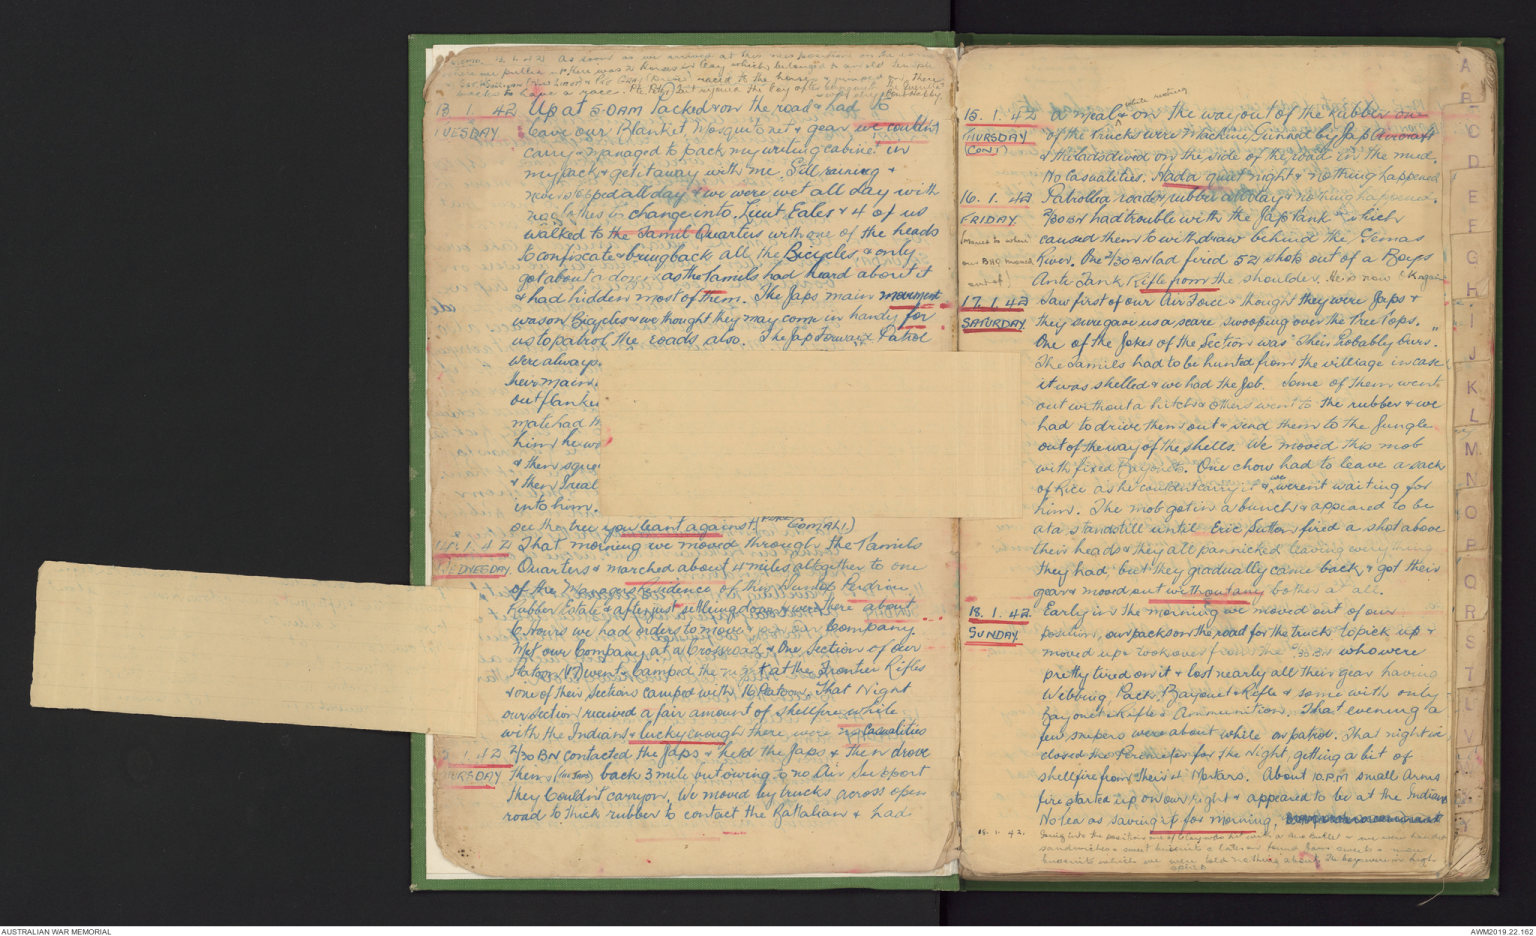 12.1.42 As soon as we arrived at this new position in the
where we pulled up there was 2 horses
race to the horses & jumped on them
13. 1. 42 Up at 5.0AM Packed & on the road & had to
TUESDAY leave our Blanket, Mosquito net & gear we couldn't
carry & managed to pack my writing cabinet in
my pack & get it away with me. Still raining &
never stopped all day & we were wet all day with
no clothes to change into. Lieut Eales & 4 of us
walked to the Tamil Quarters with one of the heads
to confiscate & bring back all the Bicycles & only
got about a dozen as the Tamils had heard about it
& had hidden most of them. The Japs main movement
was on Bicycles & we thought they may come in handy for
us to patrol the roads also. The Jap Forward Patrol
were always
their main
out flanke
mate had
him he wo
& then sque
& then I real
into him.
see the tree you leant against.
14. 1. 42 That morning we moved through the Tamils
WEDNESDAY Quarters & marched about 4 miles altogether to one
of the Managers Residence of this
Rubber Estate & after just settling down & were there about
6 Hours we had orders to move & our Company.
Met our Company at a Crossroad & One Section of our
Platoon went & camped the night at the Frontier Rifles
& one of their Sections camped with 16 Platoon. That Night
our section received a fair amount of shellfire while
with the Indians & lucky enough there were no Casualities
15. 1. 42 2/30 BN contacted the Japs & held the Japs & then drove
THURSDAY them (the Japs) back 3 mile but owing to no Air Support
they Couldn't carry on. We moved by trucks across open
road to thick rubber to contact the Battalian & had
15. 1. 42 a meal & on the way out of the Rubber one
THURSDAY of the trucks were Machine Gunned by Jap Aircraft
(CONT) & the lads dived on the side of the road in the mud.
No Casualities. Had a quiet night & nothing happened
16. 1. 42 Patrolled road & rubber all day & nothing happened.
FRIDAY 2/30 BN had trouble with the Jap Tank which
(moved to where caused them to withdraw behind the Gemas
our BHQ moved River. One 2/30 BN lad fired 52 shots out of a Boys
out of) Anti Tank Rifle from the shoulder. He is now OK again
17. 1. 42 Saw first of our Air Force & thought they were Japs &
SATURDAY they sure gave us a scare, swooping over the Tree Tops.
One of the Jokes of the Section was "Their Probably Ours."
The Tamils had to be hunted from the villiage in case
it was shelled & we had the job. Some of them went
out without a hitch & others went to the rubber & we
had to drive them out & send them to the Jungle
out of the way of the shells. We moved this mob
with fixed Bayonets. One chow had to leave a sack
of Rice as he couldn't carry it & we weren't waiting for
him. The mob got in a bunch & appeared to be
at a standstill until Eric Sutton fired a shot above
their heads & they all pannicked leaving everything
they had, but they gradually came back & got their
gear & moved out without any bother at all.
18. 1. 42. Early in the morning we moved out of our
SUNDAY position, our packs on the road for the truck to pick up &
moved up & took over from the 2/30 BN who were
pretty tired on it & lost nearly all their gear having
Webbing Pack, Bayonet & Rifle & some with only
Bayonet & Rifle & Ammunition. That evening a
few snipers were about while on patrol. That night we
closed the Perimeter for the Night getting a bit of
shellfire from their Mortars. About 10 PM small Arms
fire started up on our right & appeared to be at the Indians
No tea as saving it for morning.
18. 1. 42. Going into the position
sandwiches & sweet biscuits & later on found
biscuits which we were told nothing about. The boys were in high
spirits
AUSTRALIAN WAR MEMORIAL
AWM2019.22.162
A
B
C
D
E
F
G
H
I
J
K
L
M
N
O
P
Q
R
S
T
U
V
Y